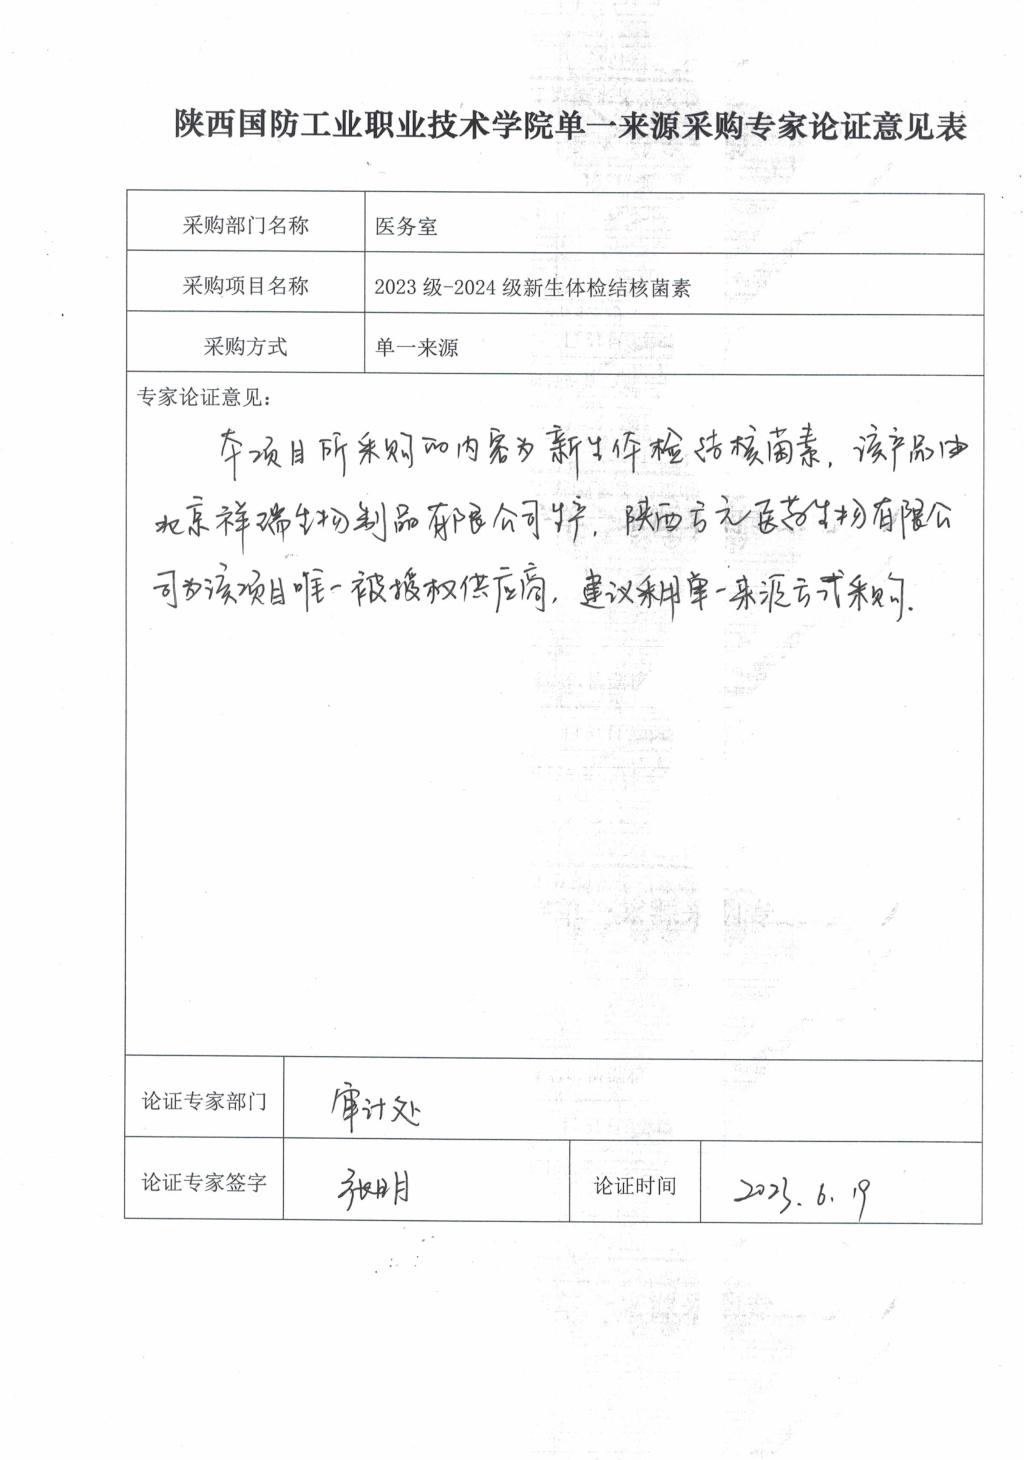 陕西国防工业职业技术学院单一来源采购专家论证意见表
采购部门名称 医务室
采购项目名称 2023级-2024级新生体检结核菌素
采购方式 单一来源
专家论证意见：
本项目所采购的内容为新生体检结核菌素，该产品由
北京祥瑞生物制品有限公司生产，陕西方元医药生物有限公
司为该项目唯一被授权供应商，建议采用单一来源方式采购.
论证专家部门 审计处
论证专家签字 张明月 论证时间 2023.6.19